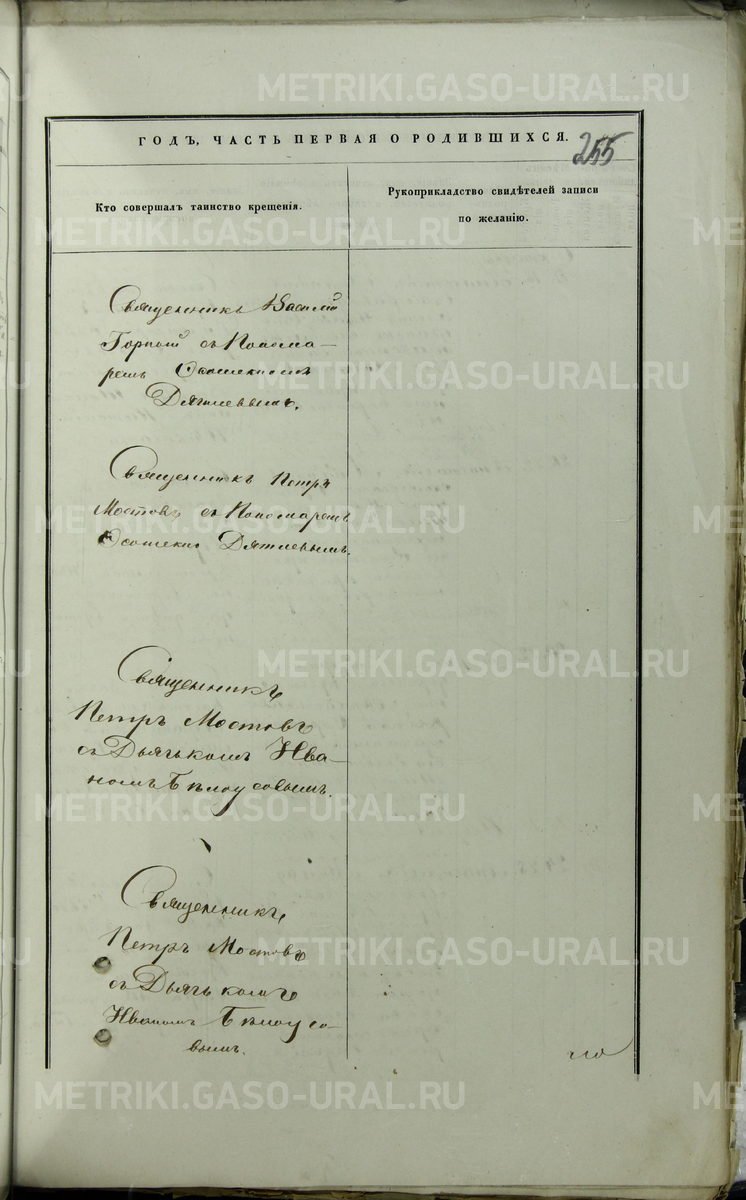 METRIKI.GASO-URAL.RU
ГОДЪ, ЧАСТЬ ПЕРВАЯ О РОДИВШИХСЯ.
255
Кто совершалъ таинство крещенія.
Рукоприкладство свидѣтелей записи
по желанію.
Священникъ Василій
съ Понома-
ремъ
Дягилевымъ.
Священникъ Петръ
Мостовъ съ Пономаремъ
Священникъ
Петръ Мостовъ
съ Дьячькомъ Ива-
номъ Бѣлоусовымъ.
Священникъ
Петръ Мостовъ
съ Дьячькомъ
Иваномъ Бѣлоусо-
вымъ.